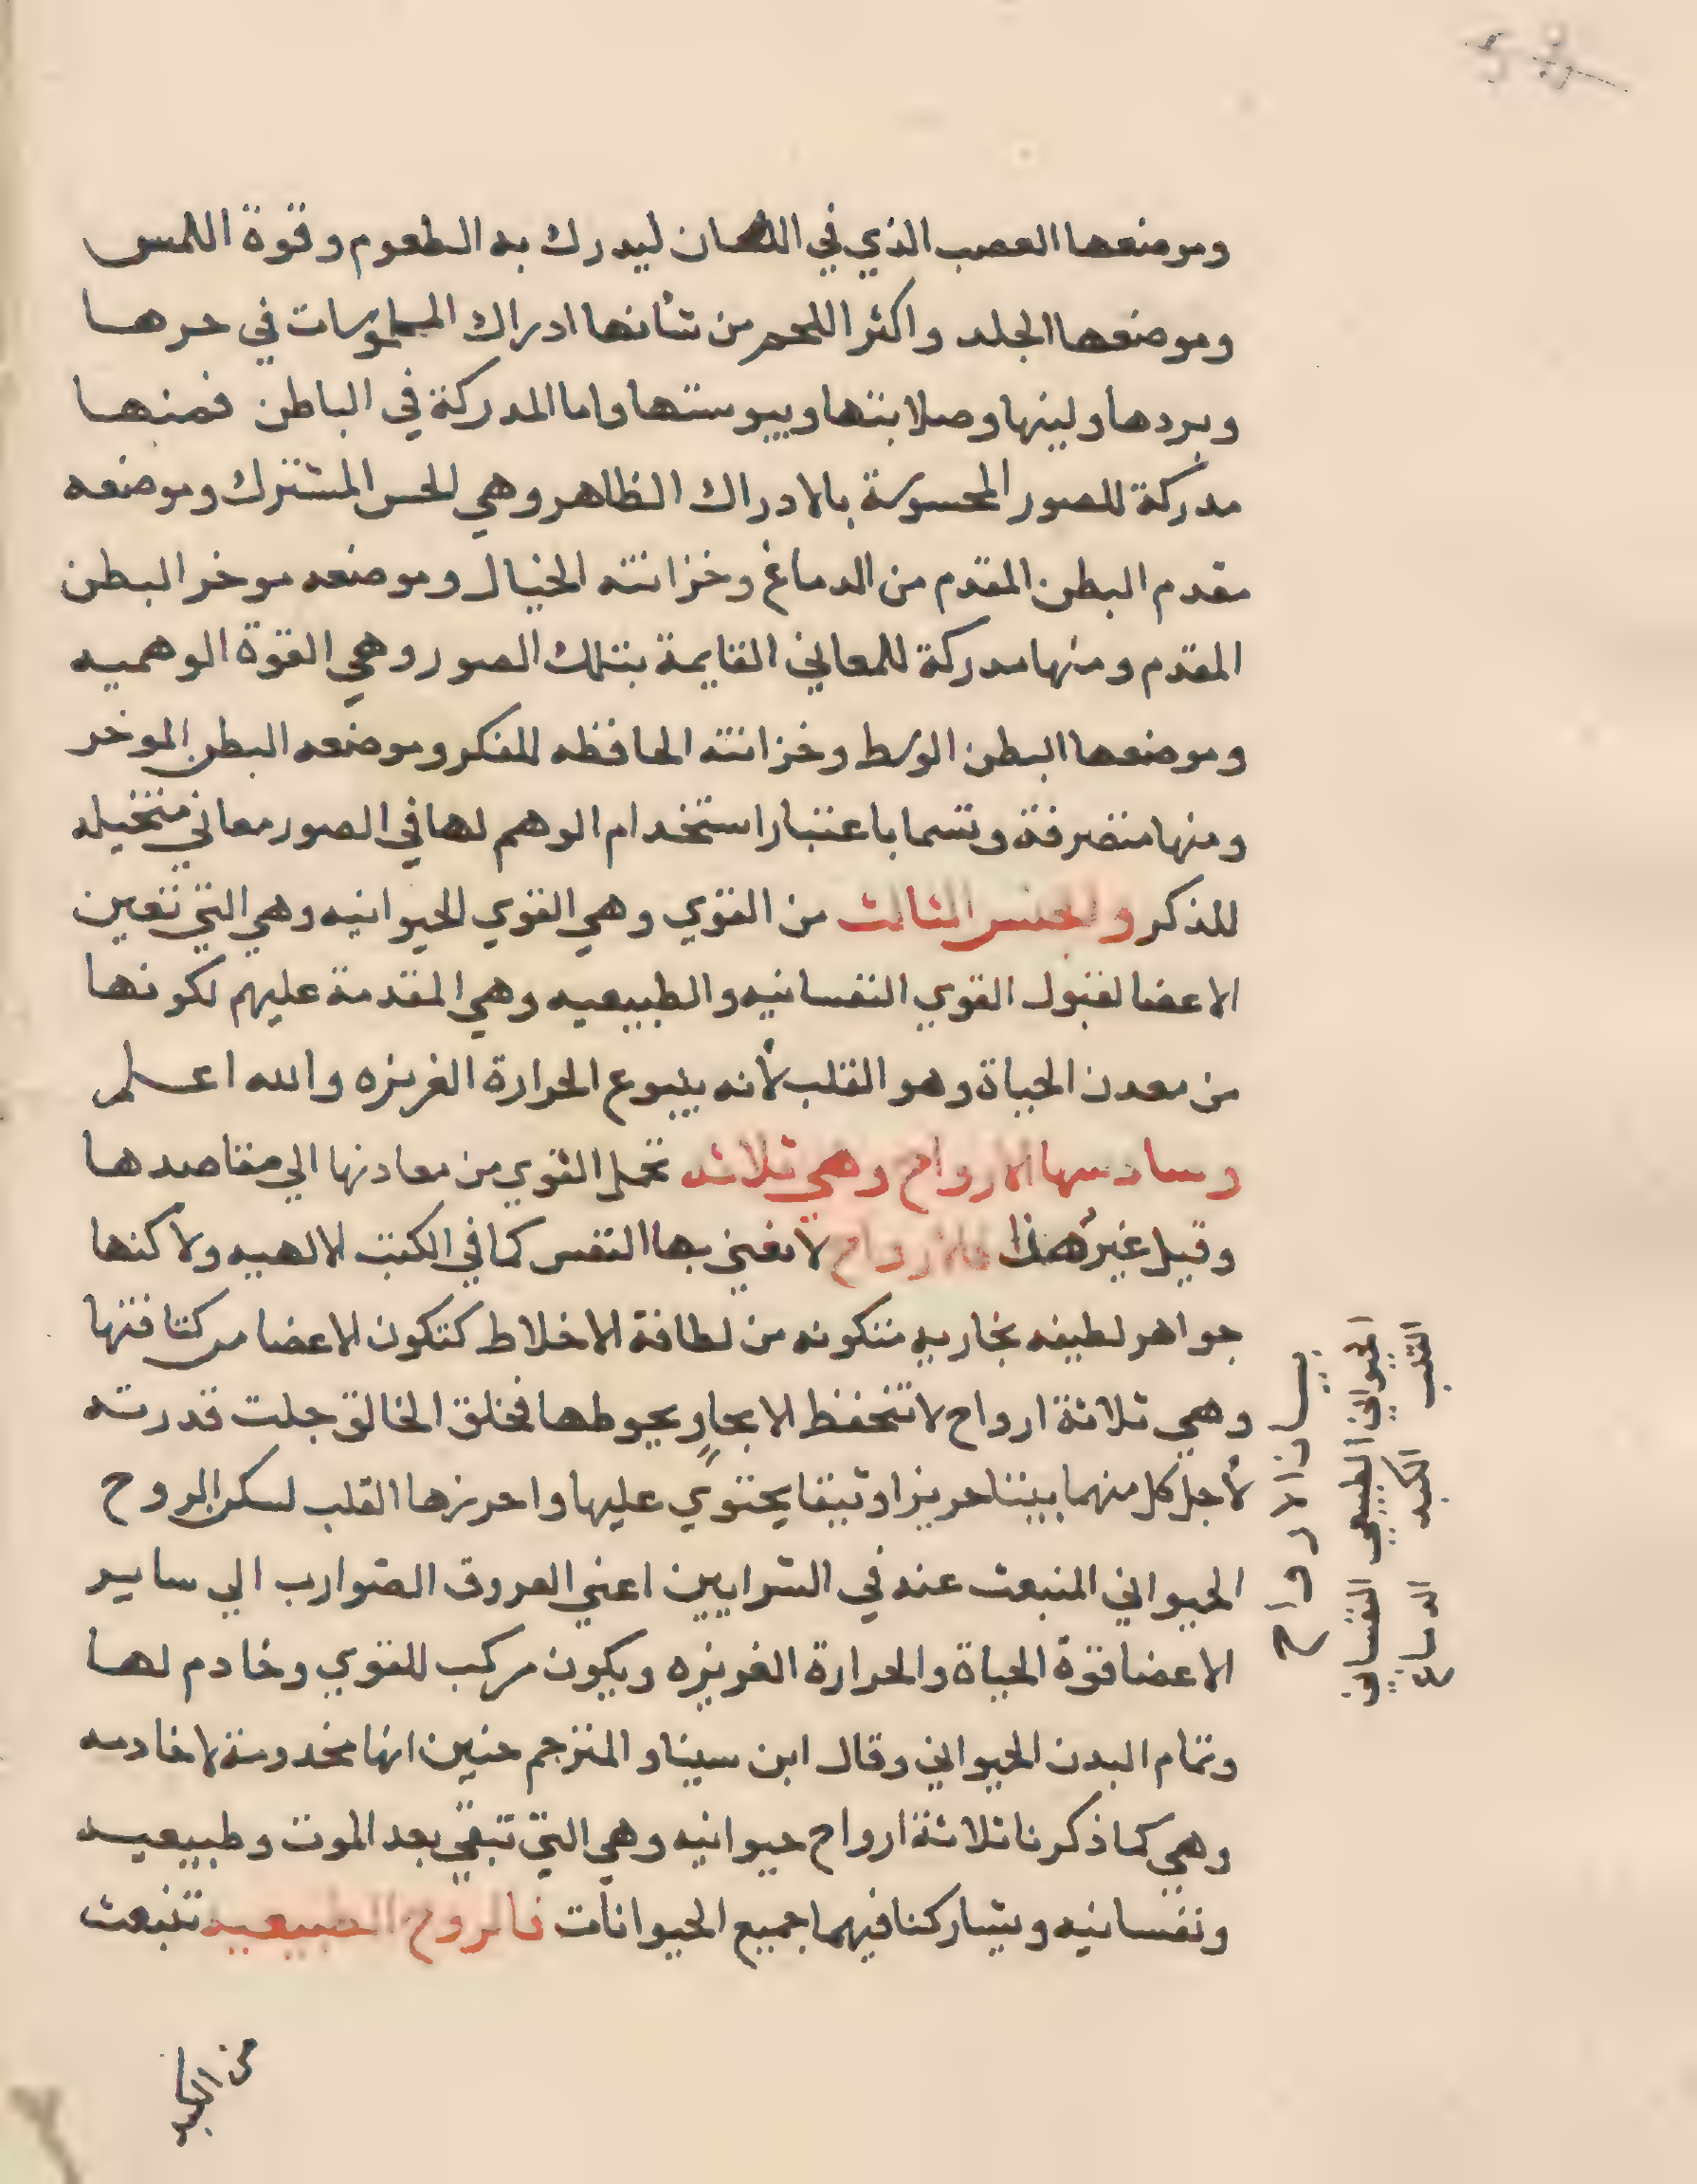 وموضعها العصب الذي في اللسان ليدرك به الطعوم وقوة اللمس
وموضعها الجلد واكثر اللحم من شأنها ادراك الملموسات في حرها
وبردها ولينها وصلابتها ويبوستها واما المدركة في الباطن فمنها
مدركة للصور المحسوسة بالادراك الظاهر وهي الحس المشترك وموضعه
مقدم البطن المقدم من الدماغ وخزانته الخيال وموضعه موخر البطن
المقدم ومنها مدركة للمعاني القايمة بتلك الصور وهي القوة الوهميه
وموضعها البطن الوسط وخزانته الحافظه للفكر وموضعه البطن الموخر
ومنها متصرفة وتسما باعتبار استخدام الوهم لها في الصور معاني متخيله
للذكر والجنس الثالث من القوي وهي القوي الحيوانيه وهي التي تعين
الاعضا لقبول القوي النفسانيه والطبيعيه وهي المقدمة عليهم لكونها
من معدن الحياة وهو القلب لأنه ينبوع الحرارة الغريزه والله اعلم
وسادسها الارواح وهي ثلاثه تحمل القوي من معادنها الي مقاصدها
وقيل غير هذا فالارواح لا نعني بها النفس كما في الكتب الالهيه ولاكنها
جواهر لطيفه بخاريه متكونه من لطافة الاخلاط كتكون الاعضا من كثافتها
وهي ثلاثة ارواح لا تنحفظ الا بحاوٍ يحوطها فخلق الخالق جلت قدرته
لأجل كل منهما بيتنا حريزا وثيقا يحتوي عليها واحرزها القلب لسكن الروح
الحيواني المنبعث عنه في الشرايين اعني العروق الضوارب الي ساير
الاعضا قوة الحياة والحرارة الغريزه ويكون مركب للقوي وخادم لها
وتمام البدن الحيواني وقال ابن سينا والمترجم حنين انها مخدومة لا خادمه
وهي كما ذكرنا ثلاثة ارواح حيوانيه وهي التي تبقي بعد الموت وطبيعيه
ونفسانيه ويشاركنا فيهما جميع الحيوانات فالروح الطبيعيه تنبعث
بيان الارواح
الحيواني الطبيعي النفساني
القلب الكبد الدماغ